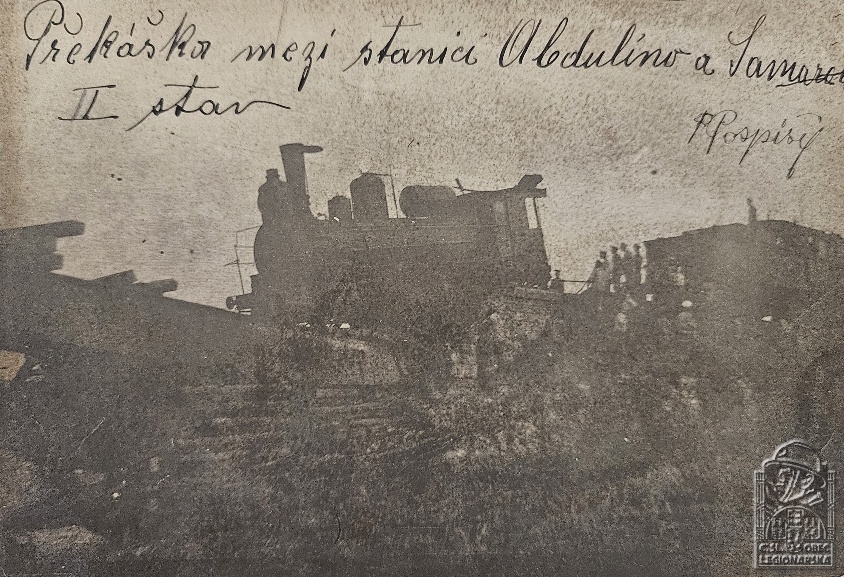 Překáška mezi stanicí Abdulíno a Samarou
II stav
Pospíšy
ČSL. OBEC
LEGIONÁŘSKÁ